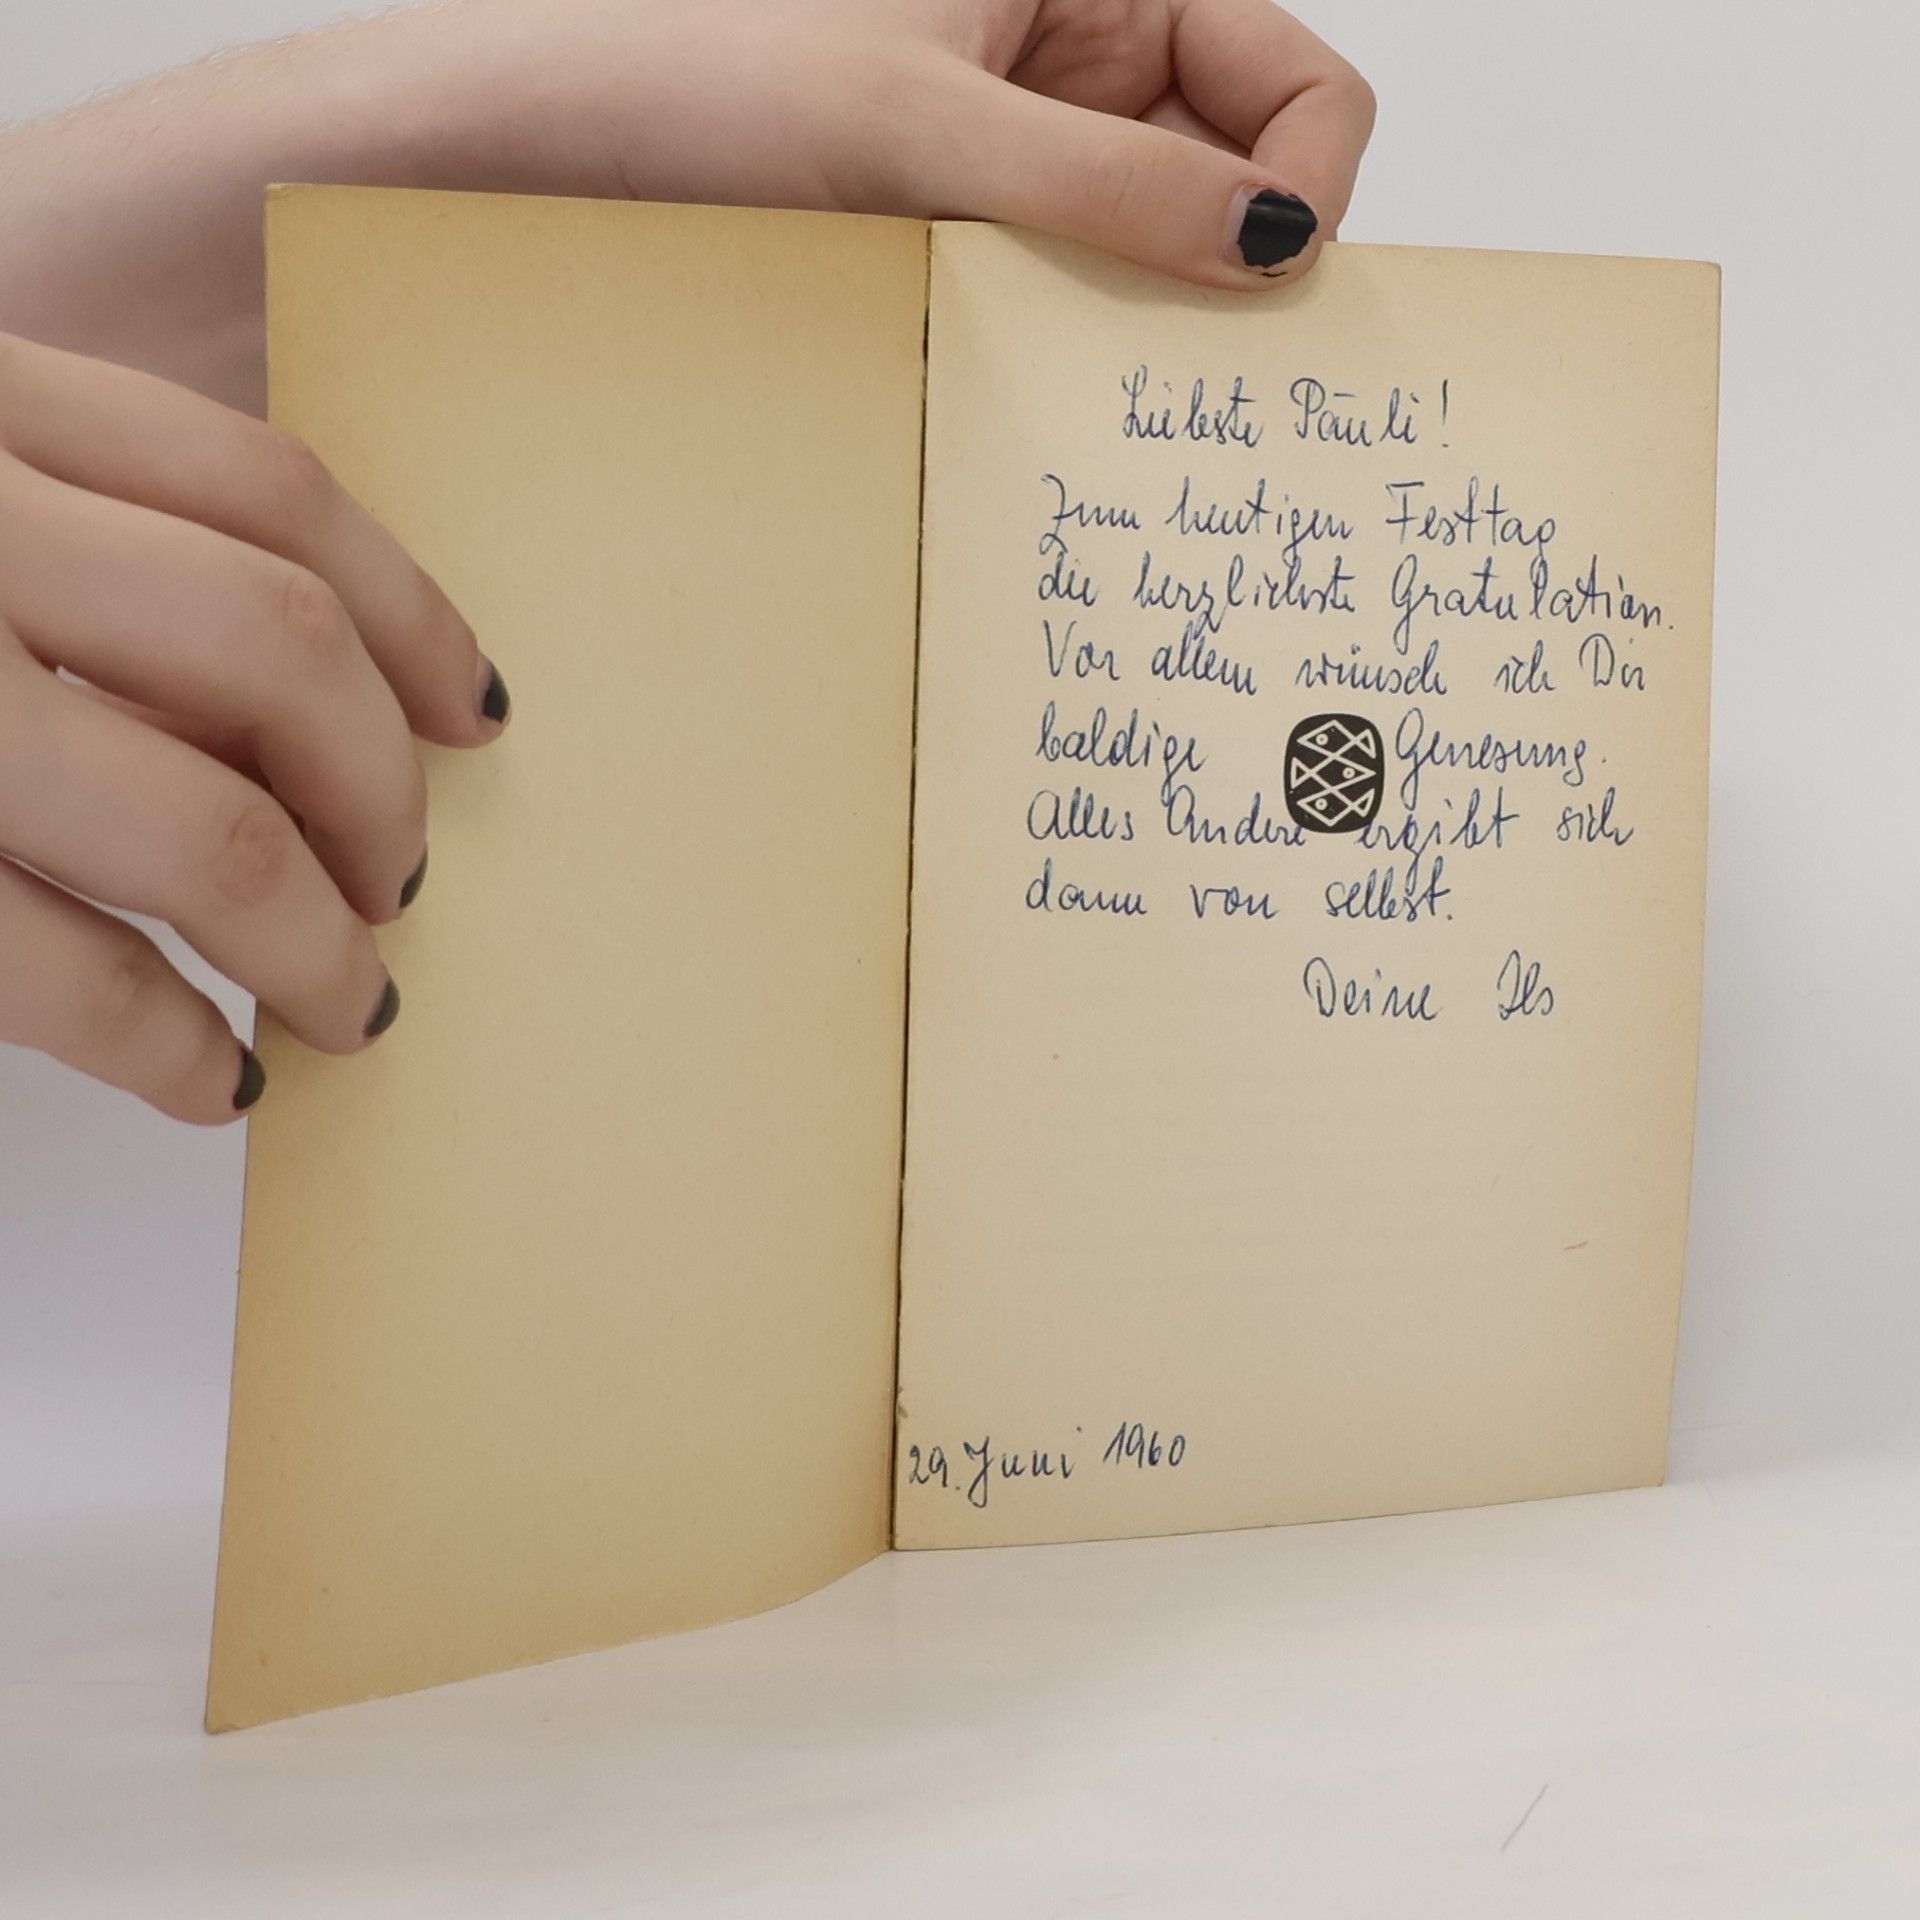 Liebste Päuli!
Zum heutigen Festtag
die herzlichste Gratulation.
Vor allem wünsch ich Dir
baldige Genesung.
Alles Andere ergibt sich
dann von selbst.
Deine Ils
29. Juni 1960